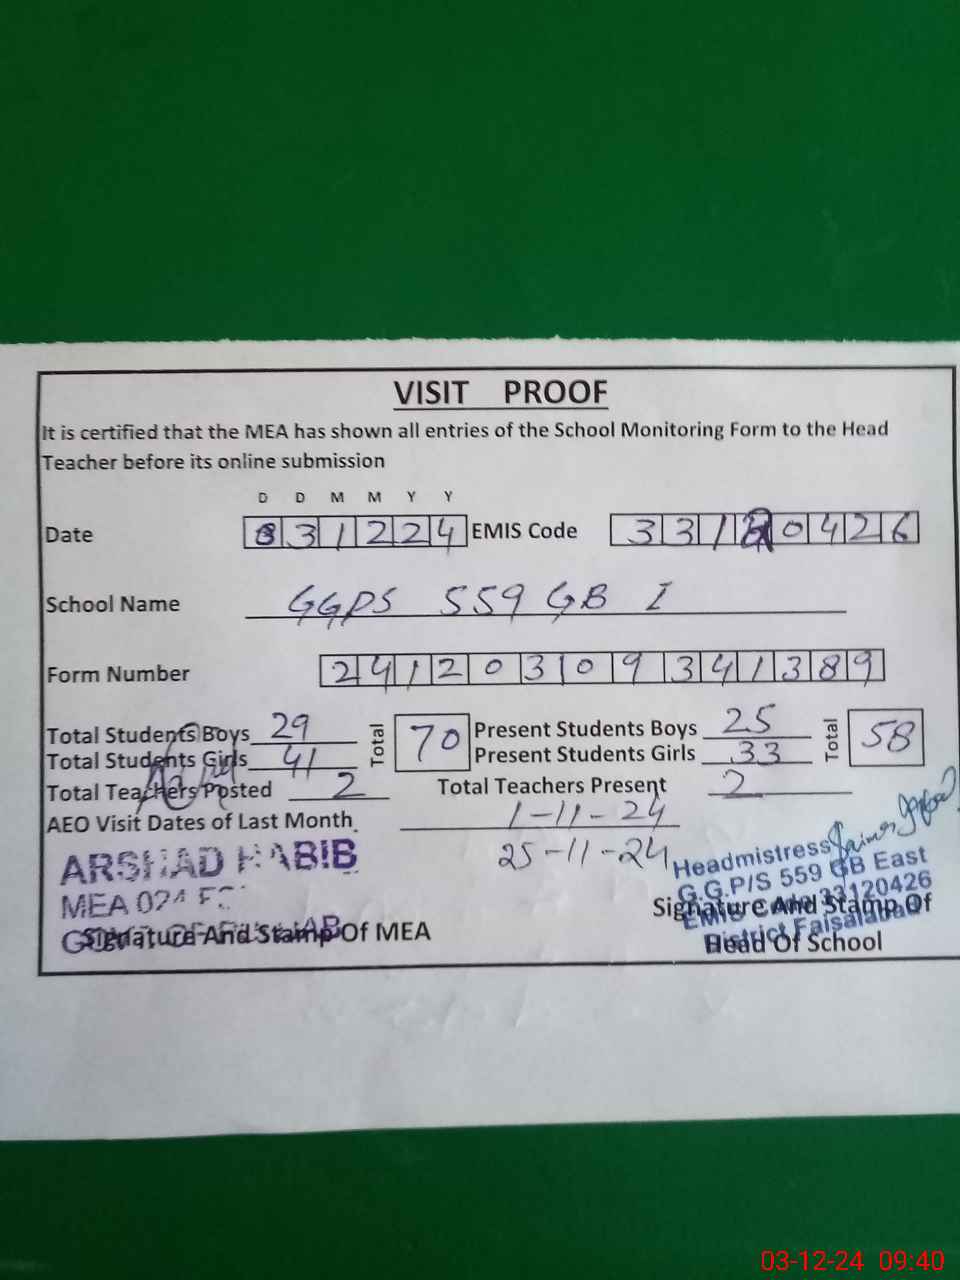 VISIT PROOF
It is certified that the MEA has shown all entries of the School Monitoring Form to the Head
Teacher before its online submission
D D M M Y Y
Date 031224 EMIS Code 33120426
School Name GGPS 559 GB I
Form Number 241203109341389
Total Students Boys 29 Total 70 Present Students Boys 25 Total 58
Total Students Girls 41 Present Students Girls 33
Total Teachers Posted 2 Total Teachers Present 2
AEO Visit Dates of Last Month 1-11-24
25-11-24
ARSHAD HABIB
MEA 024
Signature And Stamp Of MEA
Headmistress
G.G.P/S 559 GB East
EMIS Code 33120426
District Faisalabad
Signature And Stamp Of
Head Of School
03-12-24 09:40